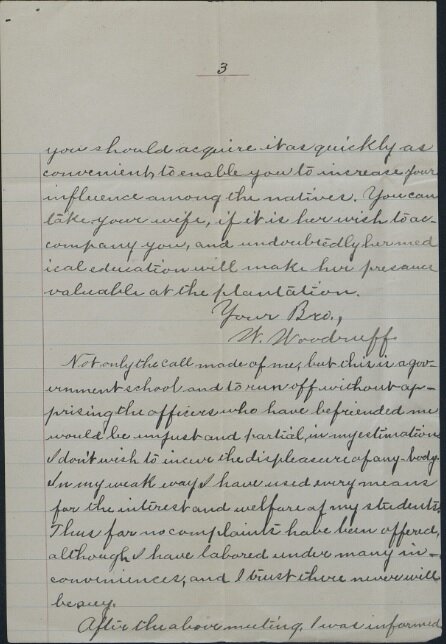 3
you should acquire it as quickly as
convenient, to enable you to increase your
influence among the natives. You can
take your wife, if it is her wish to ac-
company you, and undoubtedly her med
ical education will make her presance
valuable at the plantation.
Your Bro.,
W. Woodruff
Not only the call made of me, but this is a gov-
ernment school and to run off without ap-
prising the officers who have befriended me
would be unjust and partial, in my estimation
I don't wish to incur the displeasure of any-body.
In my weak way I have used every means
for the interest and welfare of my students.
Thus far no complaints have been offered,
although I have labored under many in-
conveniences, and I trust there never will
be any.
After the above meeting, I was informed